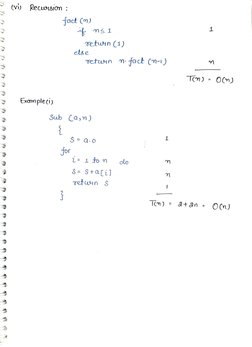 (vi) Recursion :
fact (n)
if n ≤ 1 1
return (1)
else
return n fact (n-1) n
T(n) = O(n)
Example (i)
Sub (a,n)
{
S = a.0 1
for
i = 1 to n do n
S = S + a[i] n
return S 1
} T(n) = 2 + 2n = O(n)